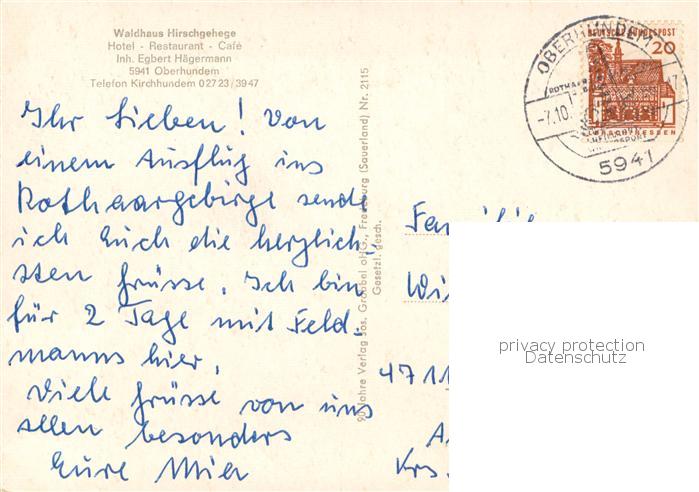 Waldhaus Hirschgehege
Hotel - Restaurant - Café
Inh. Egbert Hägermann
5941 Oberhundem
Telefon Kirchhundem 02723/3947
Ihr Lieben! Von
einem Ausflug ins
Rothaargebirge sende
ich Euch die herzlich-
sten Grüsse. Ich bin
für 2 Tage mit Feld-
manns hier.
Viele Grüsse von uns
allen besonders
Eure Mia
90 Jahre Verlag Jos. Grobbel oHG., Fredeburg (Sauerland) Nr. 2115
Gesetzl. gesch.
DEUTSCHE BUNDESPOST
20
LORSCH/HESSEN
OBERHUNDEM
-7.10.
5941
Familie
4711
Krs.
privacy protection
Datenschutz